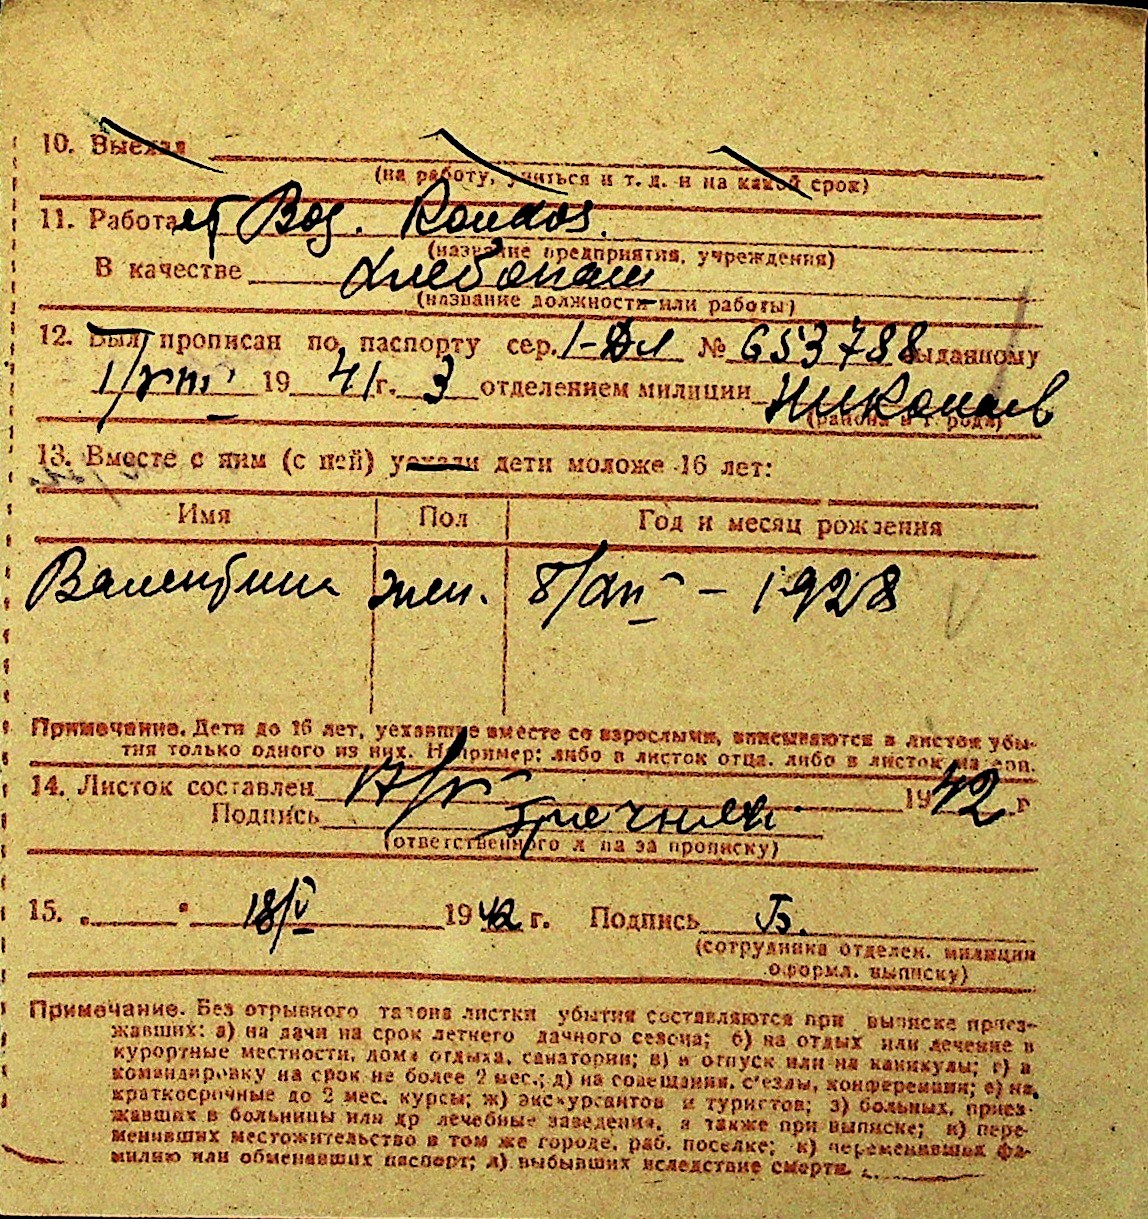 10. Выехал
(на работу, учиться и т. д. и на какой срок)
11. Работает Воз. Колхоз.
(название предприятия, учреждения)
В качестве Хлебопаш
(название должности или работы)
12. Был прописан по паспорту сер. I-ДЛ № 653788 выданному
1/VIII 1941 г. 3 отделением милиции Николаев
(района и города)
13. Вместе с ним (с ней) уехали дети моложе 16 лет:
Имя Пол Год и месяц рождения
Валентина жен. 8/XII - 1928
Примечание. Дети до 16 лет, уехавшие вместе со взрослыми, вписываются в листок убы-
тия только одного из них. Например: либо в листок отца, либо в листок матери.
14. Листок составлен 17/V 1942 г
Подпись
(ответственного лица за прописку)
15. 18/V 1942 г. Подпись Б.
(сотрудника отделен. милиции
оформл. выписку)
Примечание. Без отрывного талона листки убытия составляются при выписке приез-
жавших: а) на дачи на срок летнего дачного сезона; б) на отдых или лечение в
курортные местности, дома отдыха, санатории; в) в отпуск или на каникулы; г) в
командировку на срок не более 2 мес.; д) на совещания, съезды, конференции; е) на
краткосрочные до 2 мес. курсы; ж) экскурсантов и туристов; з) больных, приез-
жавших в больницы или др лечебные заведения, а также при выписке; и) пере-
менивших местожительство в том же городе, раб. поселке; к) переменивших фа-
милию или обменявших паспорт; л) выбывших вследствие смерти.